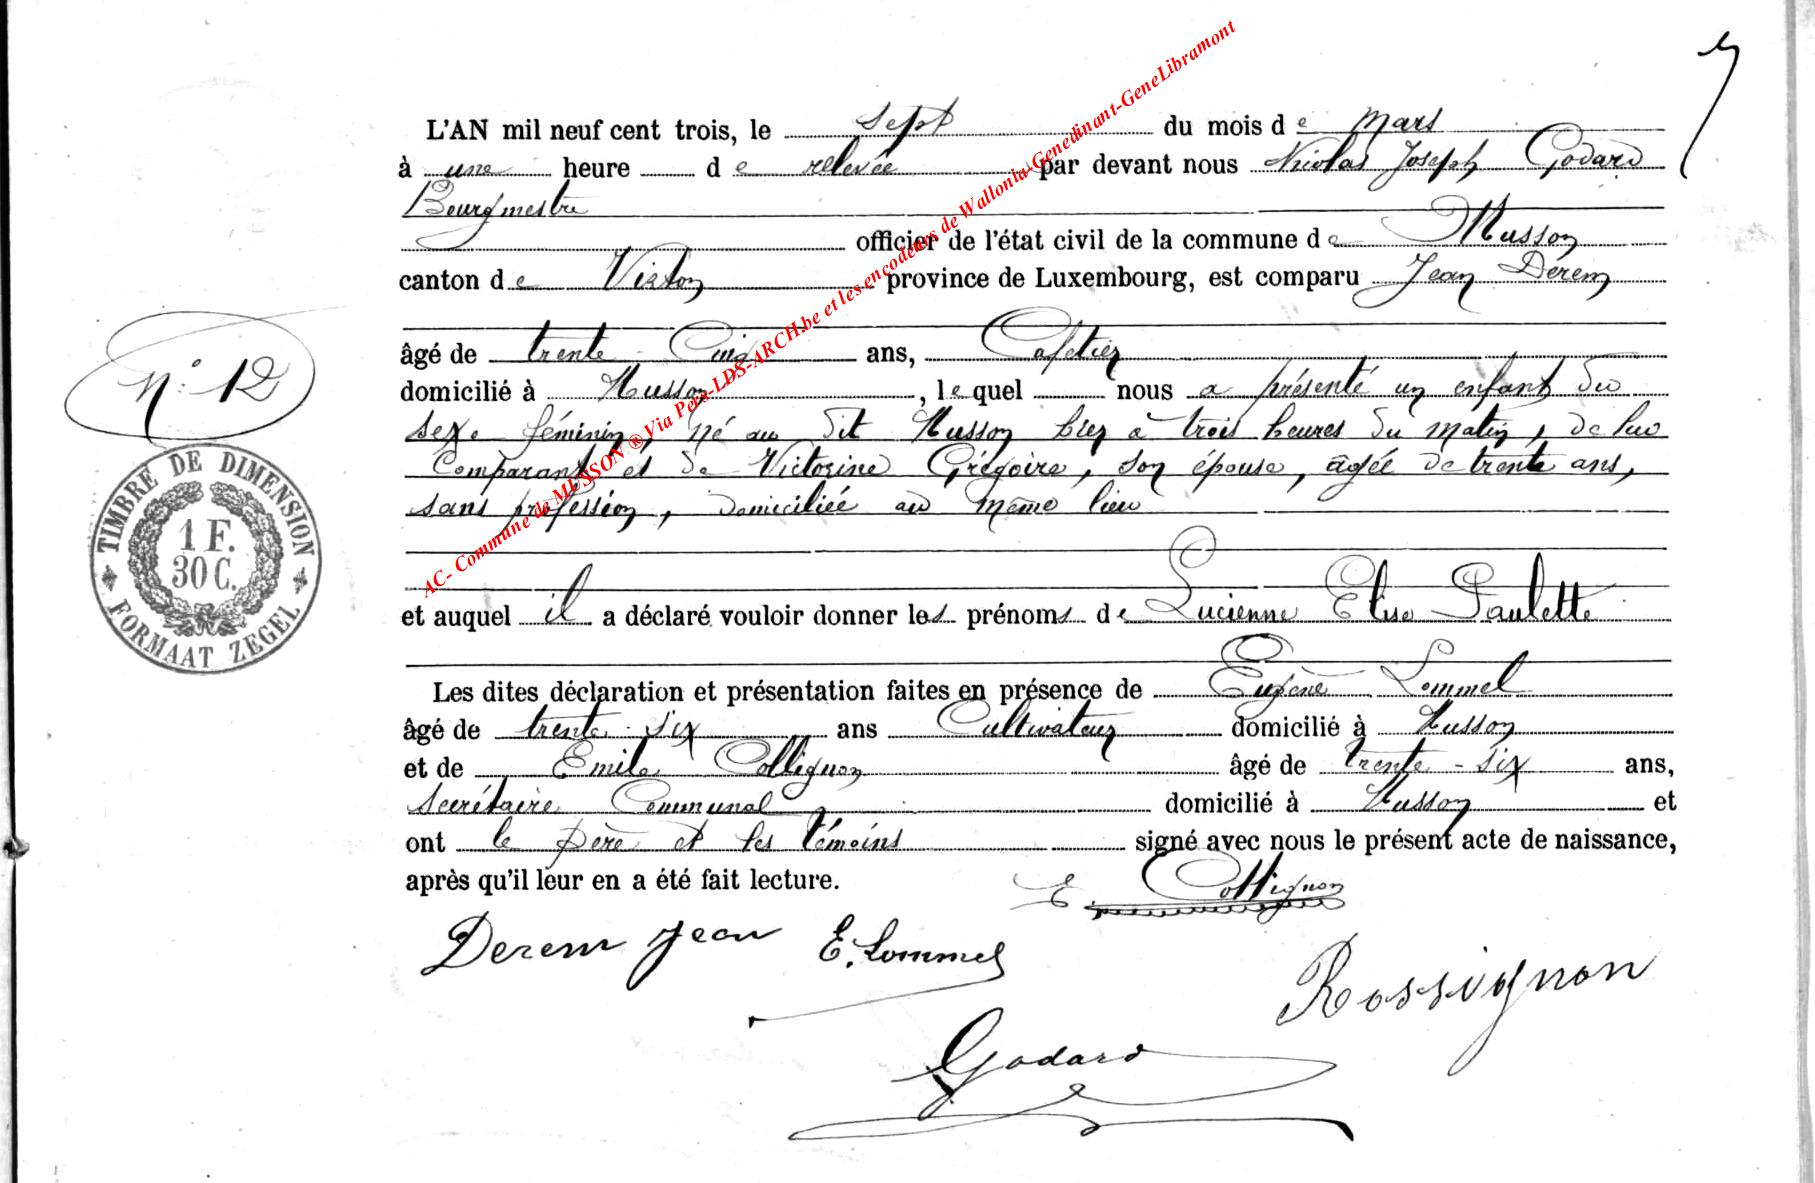 7
L'AN mil neuf cent trois, le sept du mois de mars
à une heure de relevée par devant nous Nicolas Joseph Godard
Bourgmestre
officier de l'état civil de la commune de Musson
canton de Virton province de Luxembourg, est comparu Jean Dérem
âgé de trente-Cinq ans, Cafetier
domicilié à Musson, lequel nous a présenté un enfant du
sexe féminin, né au dit Musson hier à trois heures du matin, de lui
Comparant et de Victorine Grégoire, son épouse, âgée de trente ans,
sans profession, domiciliée au même lieu
et auquel il a déclaré vouloir donner les prénoms de Lucienne Elise Paulette
Les dites déclaration et présentation faites en présence de Eugène Lommel
âgé de trente-six ans Cultivateur domicilié à Musson
et de Emile Collignon âgé de trente-six ans,
Secrétaire Communal domicilié à Musson et
ont le père et les témoins signé avec nous le présent acte de naissance,
après qu'il leur en a été fait lecture.
E. Collignon
Derem Jean E. Lommel
Rossignon
Godard
N° 12
TIMBRE DE DIMENSION
1 F.
30 C.
FORMAAT ZEGEL
AC- Commune de MUSSON ® Via Pers-LDS-ARCH.be et les encodeurs de Wallonia-Genedinant-GeneLibramont